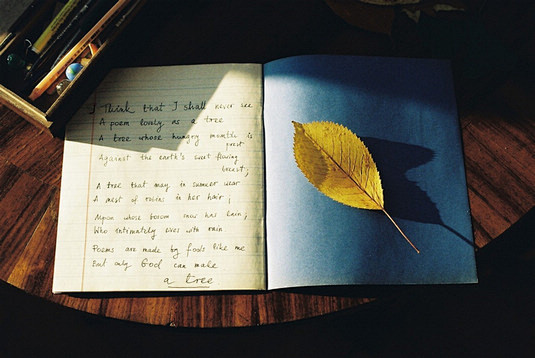 I Think that I shall never see
A poem lovely as a tree
A tree whose hungry mouth is
prest
Against the earth's sweet flowing
breast;
A tree that may in summer wear
A nest of robins in her hair;
Upon whose bosom snow has lain;
Who intimately lives with rain
Poems are made by fools like me
But only God can make
a tree